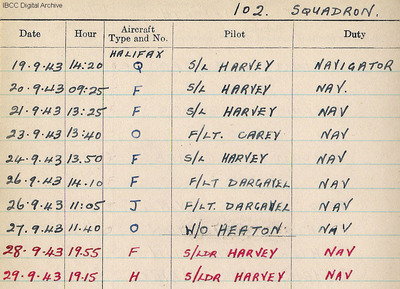 IBCC Digital Archive
102. SQUADRON.
Date Hour Aircraft Type and No. Pilot Duty
HALIFAX
19.9.43 14:20 Q S/L HARVEY NAVIGATOR
20.9.43 09:25 F S/L HARVEY NAV.
21.9.43 13:25 F S/L HARVEY NAV
23.9.43 13:40 O F/LT. CAREY NAV
24.9.43 13.50 F S/L HARVEY NAV
26.9.43 14.10 F F/LT DARGAVEL NAV
26.9.43 11:05 J F/LT. DARGAVEL NAV
27.9.43 11.40 O W/O HEATON NAV
28.9.43 19.55 F S/LDR HARVEY NAV
29.9.43 19.15 H S/LDR HARVEY NAV